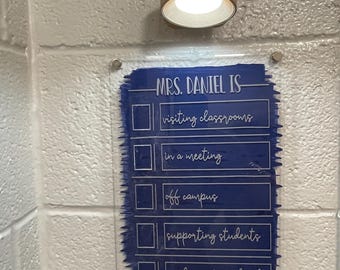 MRS. DANIEL IS
visiting classrooms
in a meeting
off campus
supporting students